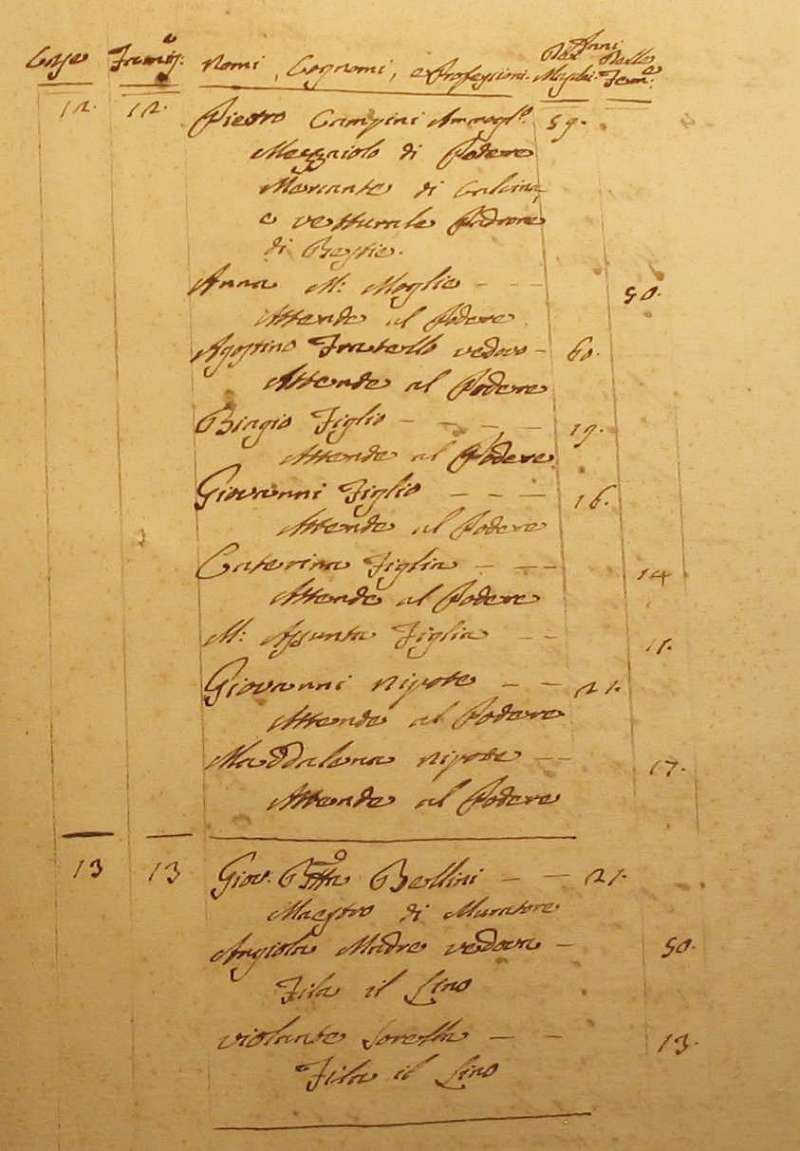 Case Famig: Nomi, Cognomi, e Professioni. Anni
Dei Maschi. Delle Fem:e
12. 12. Pietro Campini Ammogl:o 59.
Mezzaiolo di Podere
Mercante di Calcina,
e vetturale Padrone
di Bestie.
Anna M: Moglie - - - 50.
Attende al Podere
Agostino Fratello vedovo - 60.
Attende al Podere
Biagio Figlio - - - - 19.
Attende al Podere.
Giovanni Figlio - - - 16.
Attende al Podere
Caterina Figlia - - - 14
Attende al Podere
M: Assunta Figlia - - 11.
Giovanni nipote - - 21.
Attende al Podere
Maddalena nipote - - 17.
Attende al Podere
13 13 Giov. Btta Bellini - - 21.
Maestro di Muratore
Angiola Madre vedova - 50.
Fila il Lino
Violante Sorella - - 13.
Fila il Lino